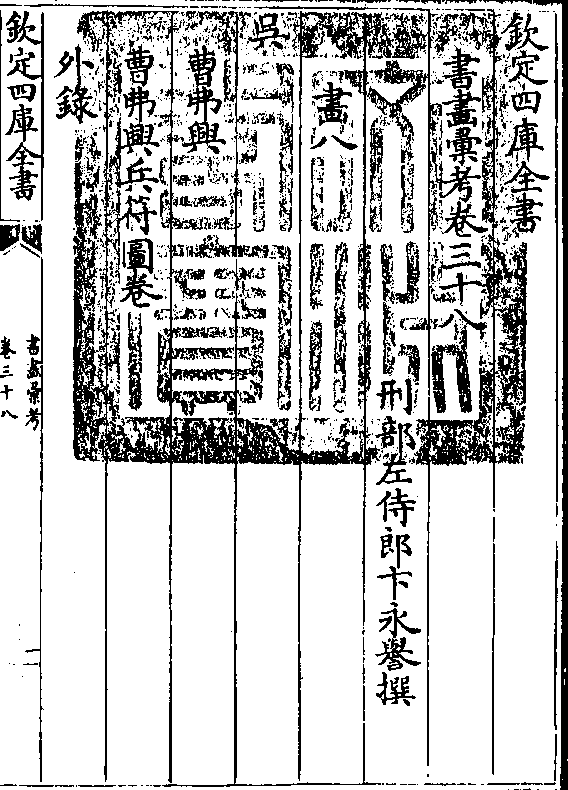 欽定四庫全書
書畫彚考卷三十八
刑部左侍郎卞永譽撰
畫八
吳
曹弗興
曹弗興兵符圖卷
外錄
欽定四庫全書
書畫彚考
卷三十八
一